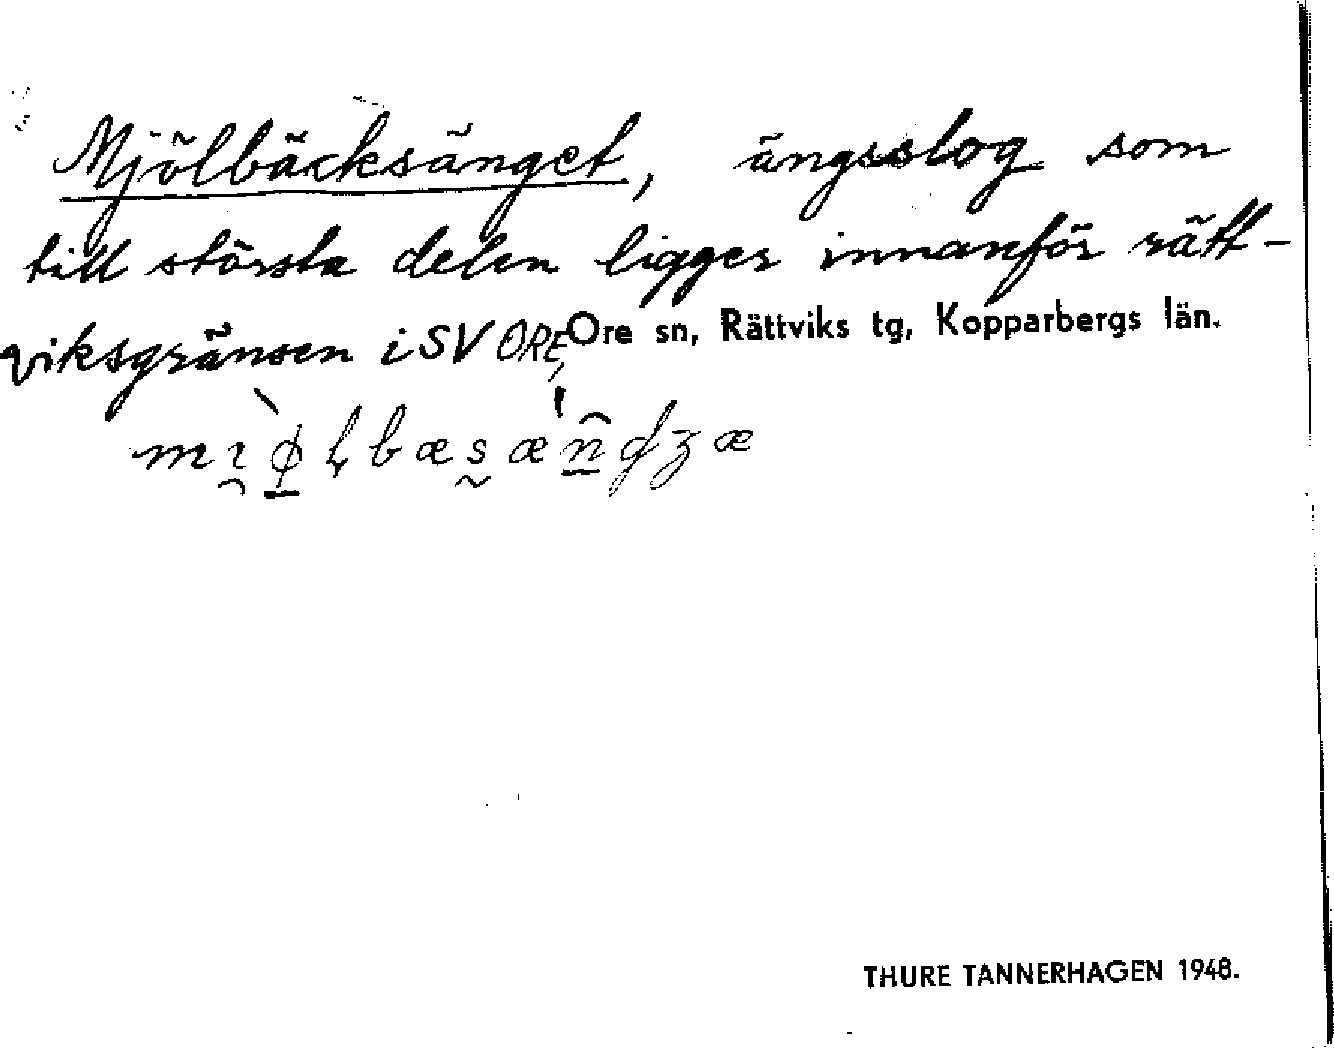 Mjölbäcksänget, ängsslog som
till största delen ligger innanför rätt-
viksgränsen i SV ORE, Ore sn, Rättviks tg, Kopparbergs län.
THURE TANNERHAGEN 1948.